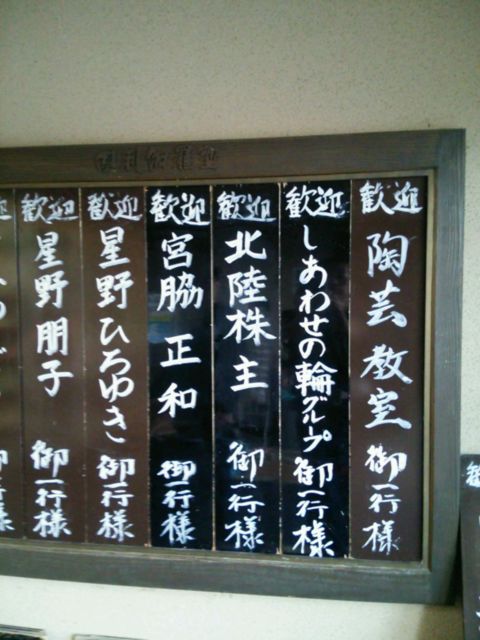 歓迎 陶芸教室 御一行様
歓迎 しあわせの輪グループ 御一行様
歓迎 北陸株主 御一行様
歓迎 宮脇正和 御一行様
歓迎 星野ひろゆき 御一行様
歓迎 星野朋子 御一行様